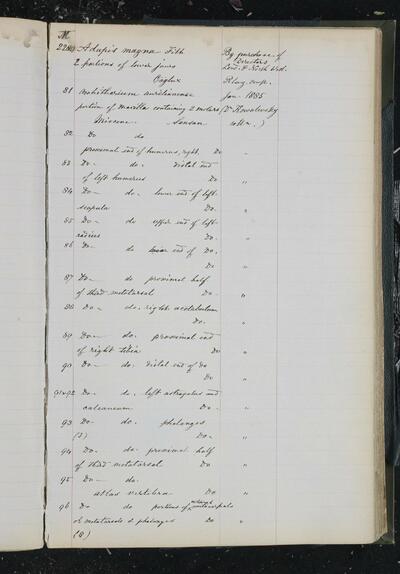 M
2280 Adapis magna Filh By purchase of
2 portions of lower jaws Directors
Caylux Lond. & North Wes.
Rlwy. comp.
81 Anchitherium aurelianense Jan 1885
portion of maxilla containing 2 molars (Dr Kowalevsky
Miocene Sansan colln.)
82 Do do
proximal end of humerus, right. Do "
83 Do - do. distal end
of left humerus Do "
84 Do - do - lower end of left
scapula Do. "
85 Do - do upper end of left
radius Do - "
86 Do - do end of Do.
Do "
87 Do - do proximal half
of third metatarsal Do - "
88 Do - do. right acetabulum
Do. "
89 Do - do. proximal end
of right tibia Do "
90 Do - do. distal end of Do
Do "
91+92 Do - do. left astragalus and
calcaneum Do - "
93 Do - do. phalanges
(2) Do - "
94 Do. do- proximal half
of third metatarsal Do "
95 Do - do.
atlas vertebra Do "
96 Do do portions of metacarpals
or metatarsals & phalanges Do "
(8)